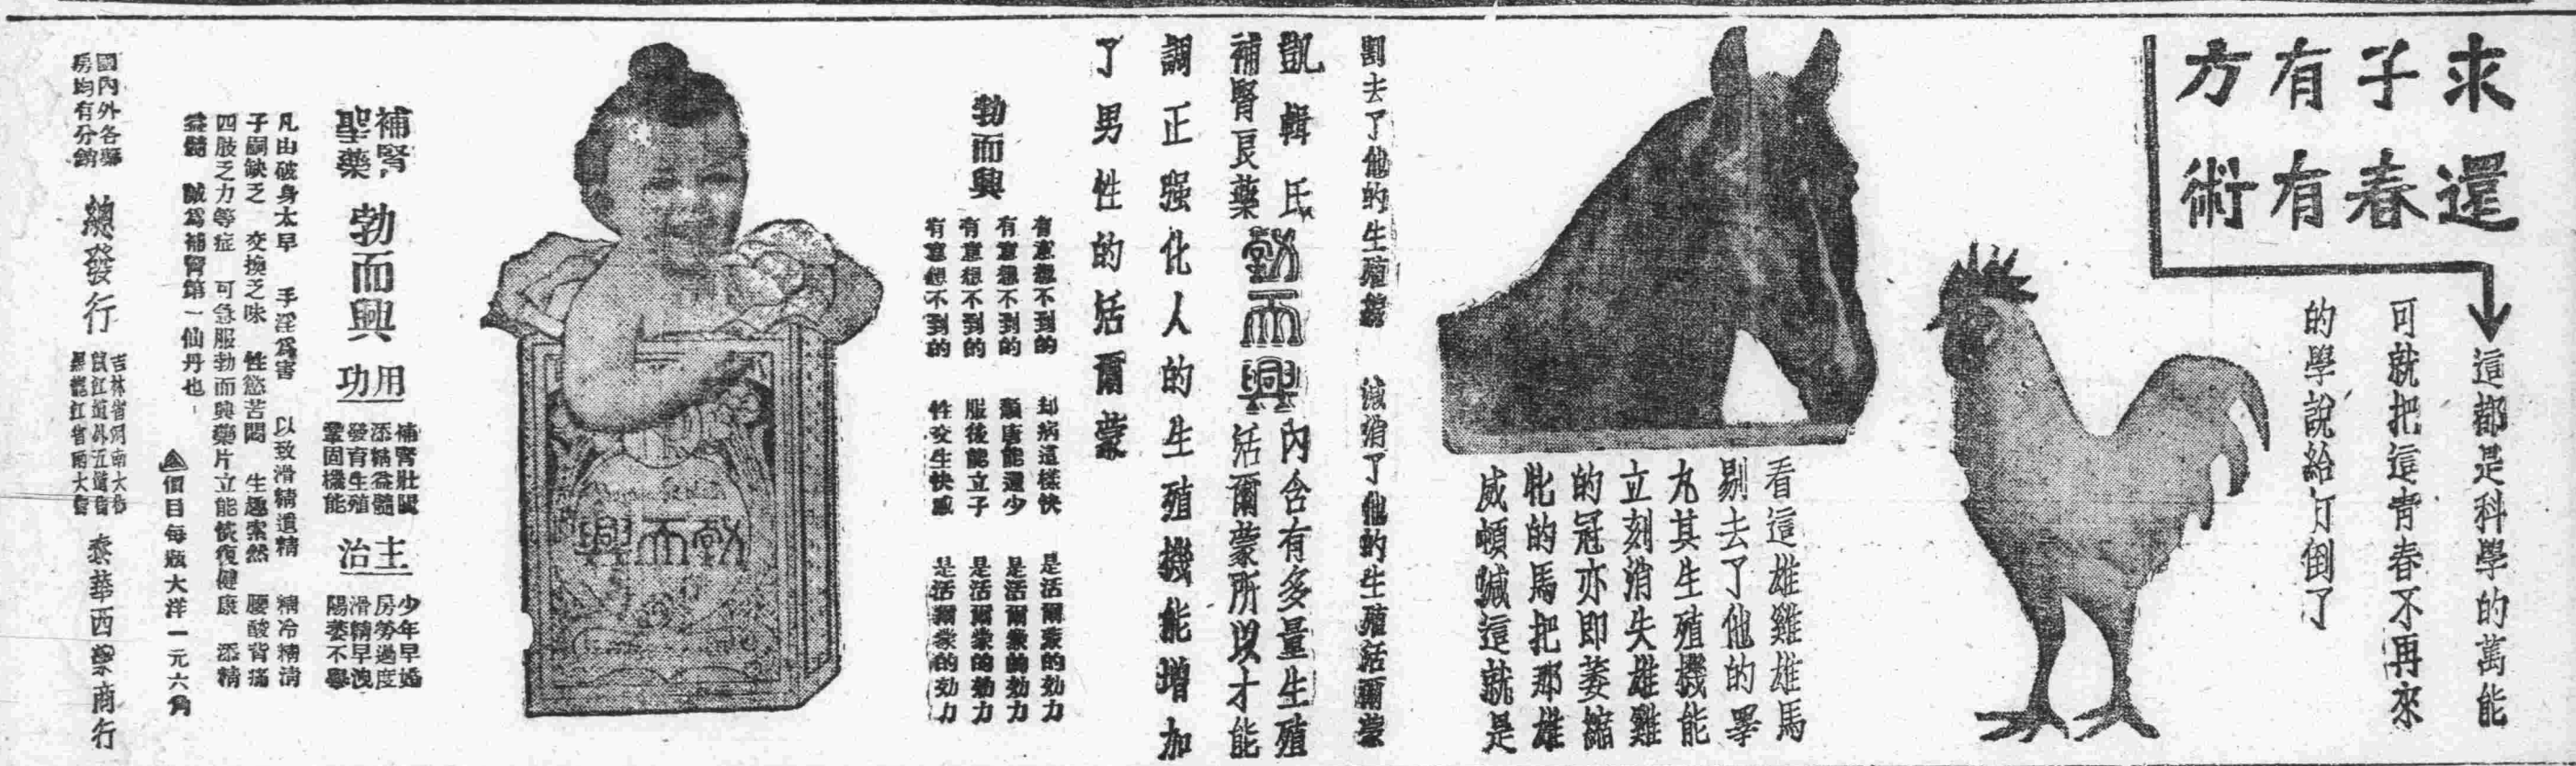 求子有方
還春有術
這都是科學的萬能
可就把這青春不再來
的學說給打倒了
看這雄雞雄馬
剔去了他的睪
丸其生殖機能
立刻消失雄雞
的冠亦即萎縮
牝的馬把那雄
威頓喊這就是
割去了他的生殖 減消了他的生殖活爾蒙
凱輯氏
補腎良藥
勃而興
內含有多量生殖
活爾蒙所以才能
調正强化人的生殖機能增加
了男性的活爾蒙
勃而興
有意想不到的 却病這樣快 是活爾蒙的効力
有意想不到的 頹唐能還少 是活爾蒙的効力
有意想不到的 服後能立子 是活爾蒙的効力
有意想不到的 性交生快感 是活爾蒙的効力
勃而興
補腎
聖藥
勃而興
用功
補腎壯陽
添精益髓
發育生殖
鞏固機能
主治
少年早婚
房勞過度
滑精早洩
陽萎不舉
凡由破身太早 手淫為害 以致滑精遺精 精冷精清
子嗣缺乏 交換乏味 性慾苦悶 生趣索然 腰酸背痛
四肢乏力等症 可急服勃而興藥片立能恢復健康 添精
益髓 誠為補腎第一仙丹也
價目每瓶大洋一元六角
國內外各藥
房均有分銷
總發行
吉林省河南大街
濱江道外五道街
黑龍江省南大街
泰華西藥商行